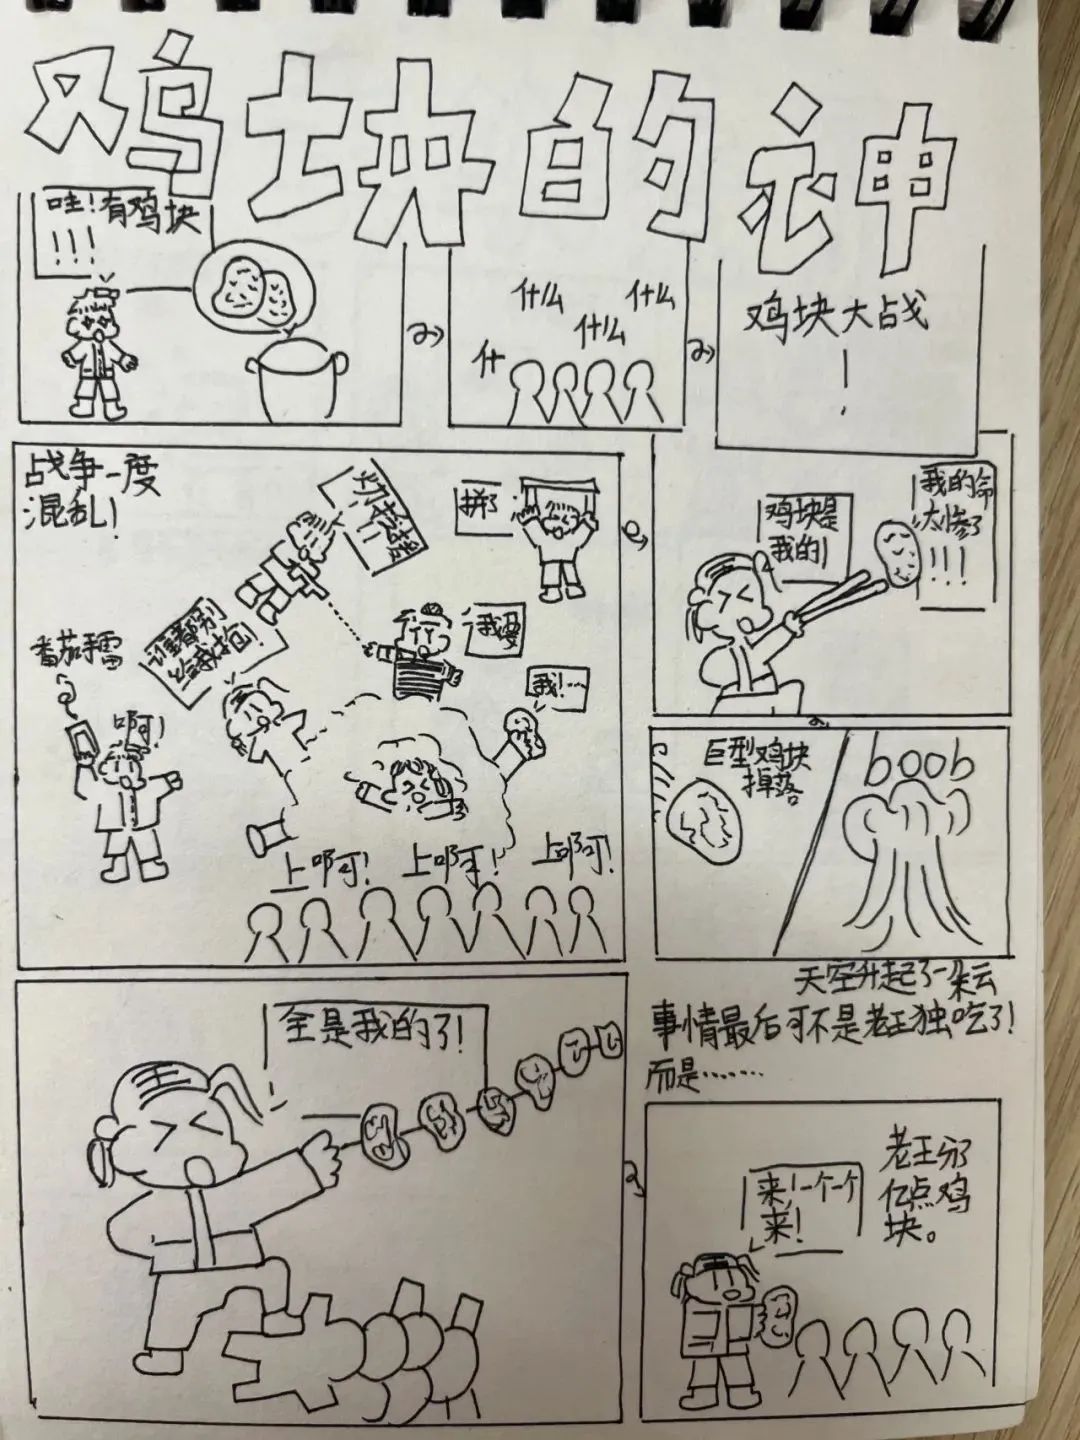 鸡块的神
哇!有鸡块
!!!
什么
什么
什么
什
鸡块大战
!
战争一度
混乱!
拼了
我要
谁都别
给我抢回!
番茄手雷
啊!
我!……
上啊!
上啊!
上啊!
鸡块是
我的!
我的命
太惨了
!!!
巨型鸡块
掉落
boob
天空升起了一朵云
事情最后可不是老王独吃了!
而是……
全是我的了!
来!一个一个
来!
老王分了
亿点鸡
块。